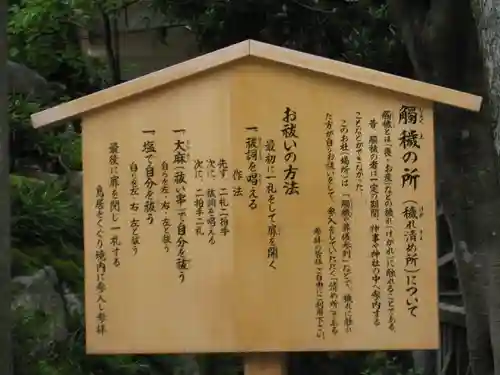 觸穢の所(穢れ清め所)について
觸穢とは「喪・お産」などの穢れ(けがれ)に触れることである
昔、觸穢の者は一定の期間、神事や神社の中へ参内する
ことなどができなかった。
このお社(場所)は「觸穢や葬儀参列」などで、穢れに触れ
た方が自らお祓いをして、参入をしていただく「清め所」である
参拝の皆様ご自由に利用下さい
お祓いの方法
最初に一礼をして扉を開く
一 祓詞を唱える
作法
先ず、二礼二拍手
次に、祓詞を唱える
次に、二拍手二礼
一 大麻(祓い串)で自分を祓う
自ら左・右・左と祓う
一 塩で自分を祓う
自らを左・右・左と祓う
最後に扉を閉じ一礼する
鳥居をくぐり境内に参入し参拝